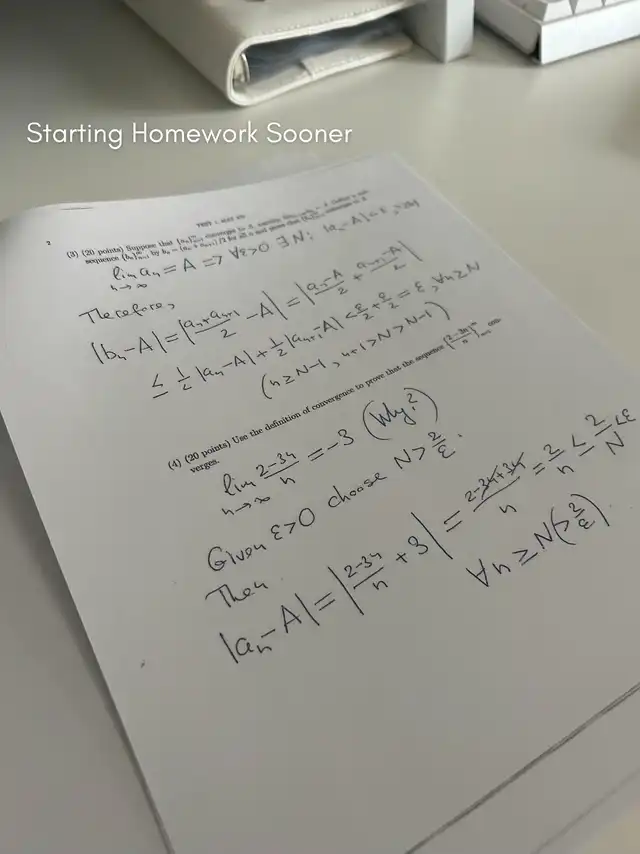 Starting Homework Sooner
2
TEST 1, MAT
(3) (20 points) Suppose that {a_n}_{n=1}^∞ converges to A
sequence {b_n}_{n=1}^∞ by b_n = (a_n + a_{n+1})/2 for all n and prove that
lim_{n→∞} a_n = A ⟹ ∀ε>0 ∃N: |a_n−A|<ε,
Therefore,
|b_n−A| = |(a_n+a_{n+1})/2 − A| = |(a_n−A)/2 + (a_{n+1}−A)/2|
≤ ½|a_n−A| + ½|a_{n+1}−A| < ε/2 + ε/2 = ε, ∀n≥N
(n≥N−1, n+1>N>N−1)
(4) (20 points) Use the definition of convergence to prove that the sequence {(2−3n)/n}_{n=1}^∞ con-
verges.
lim_{n→∞} (2−3n)/n = −3 (Why?)
Given ε>0 choose N > 2/ε.
Then
|a_n−A| = |(2−3n)/n + 3| = (2−3n+3n)/n = 2/n ≤ 2/N < ε
∀n ≥ N(>2/ε)